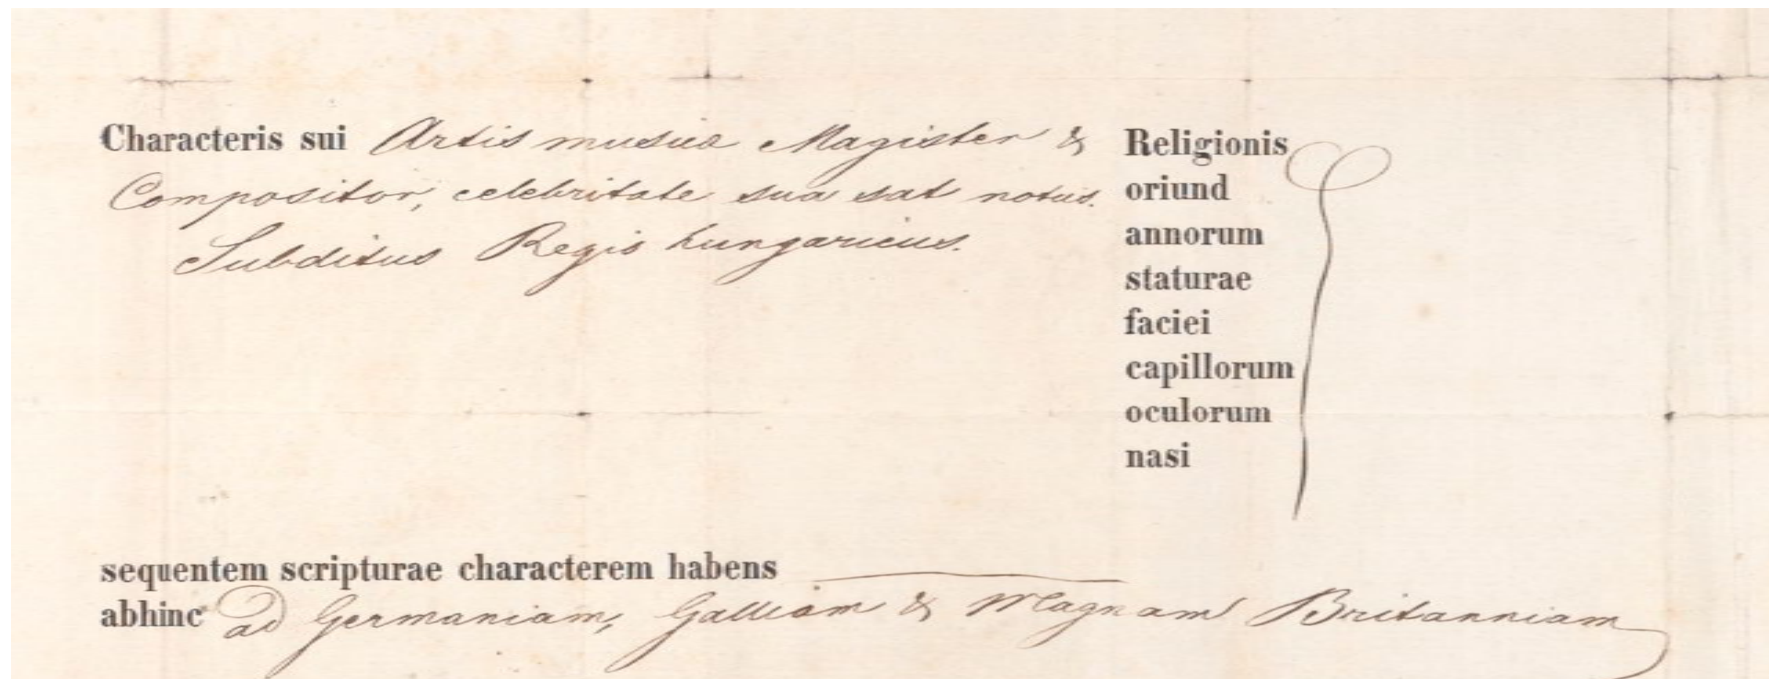 Characteris sui Artis musicæ Magister &
Compositor, celebritate sua sat notus.
Subditus Regis hungaricus.
Religionis
oriund
annorum
staturae
faciei
capillorum
oculorum
nasi
sequentem scripturae characterem habens
abhinc ad Germaniam, Galliam & Magnam Britanniam